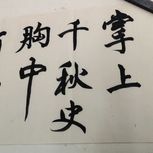 掌上
千秋史
胸中